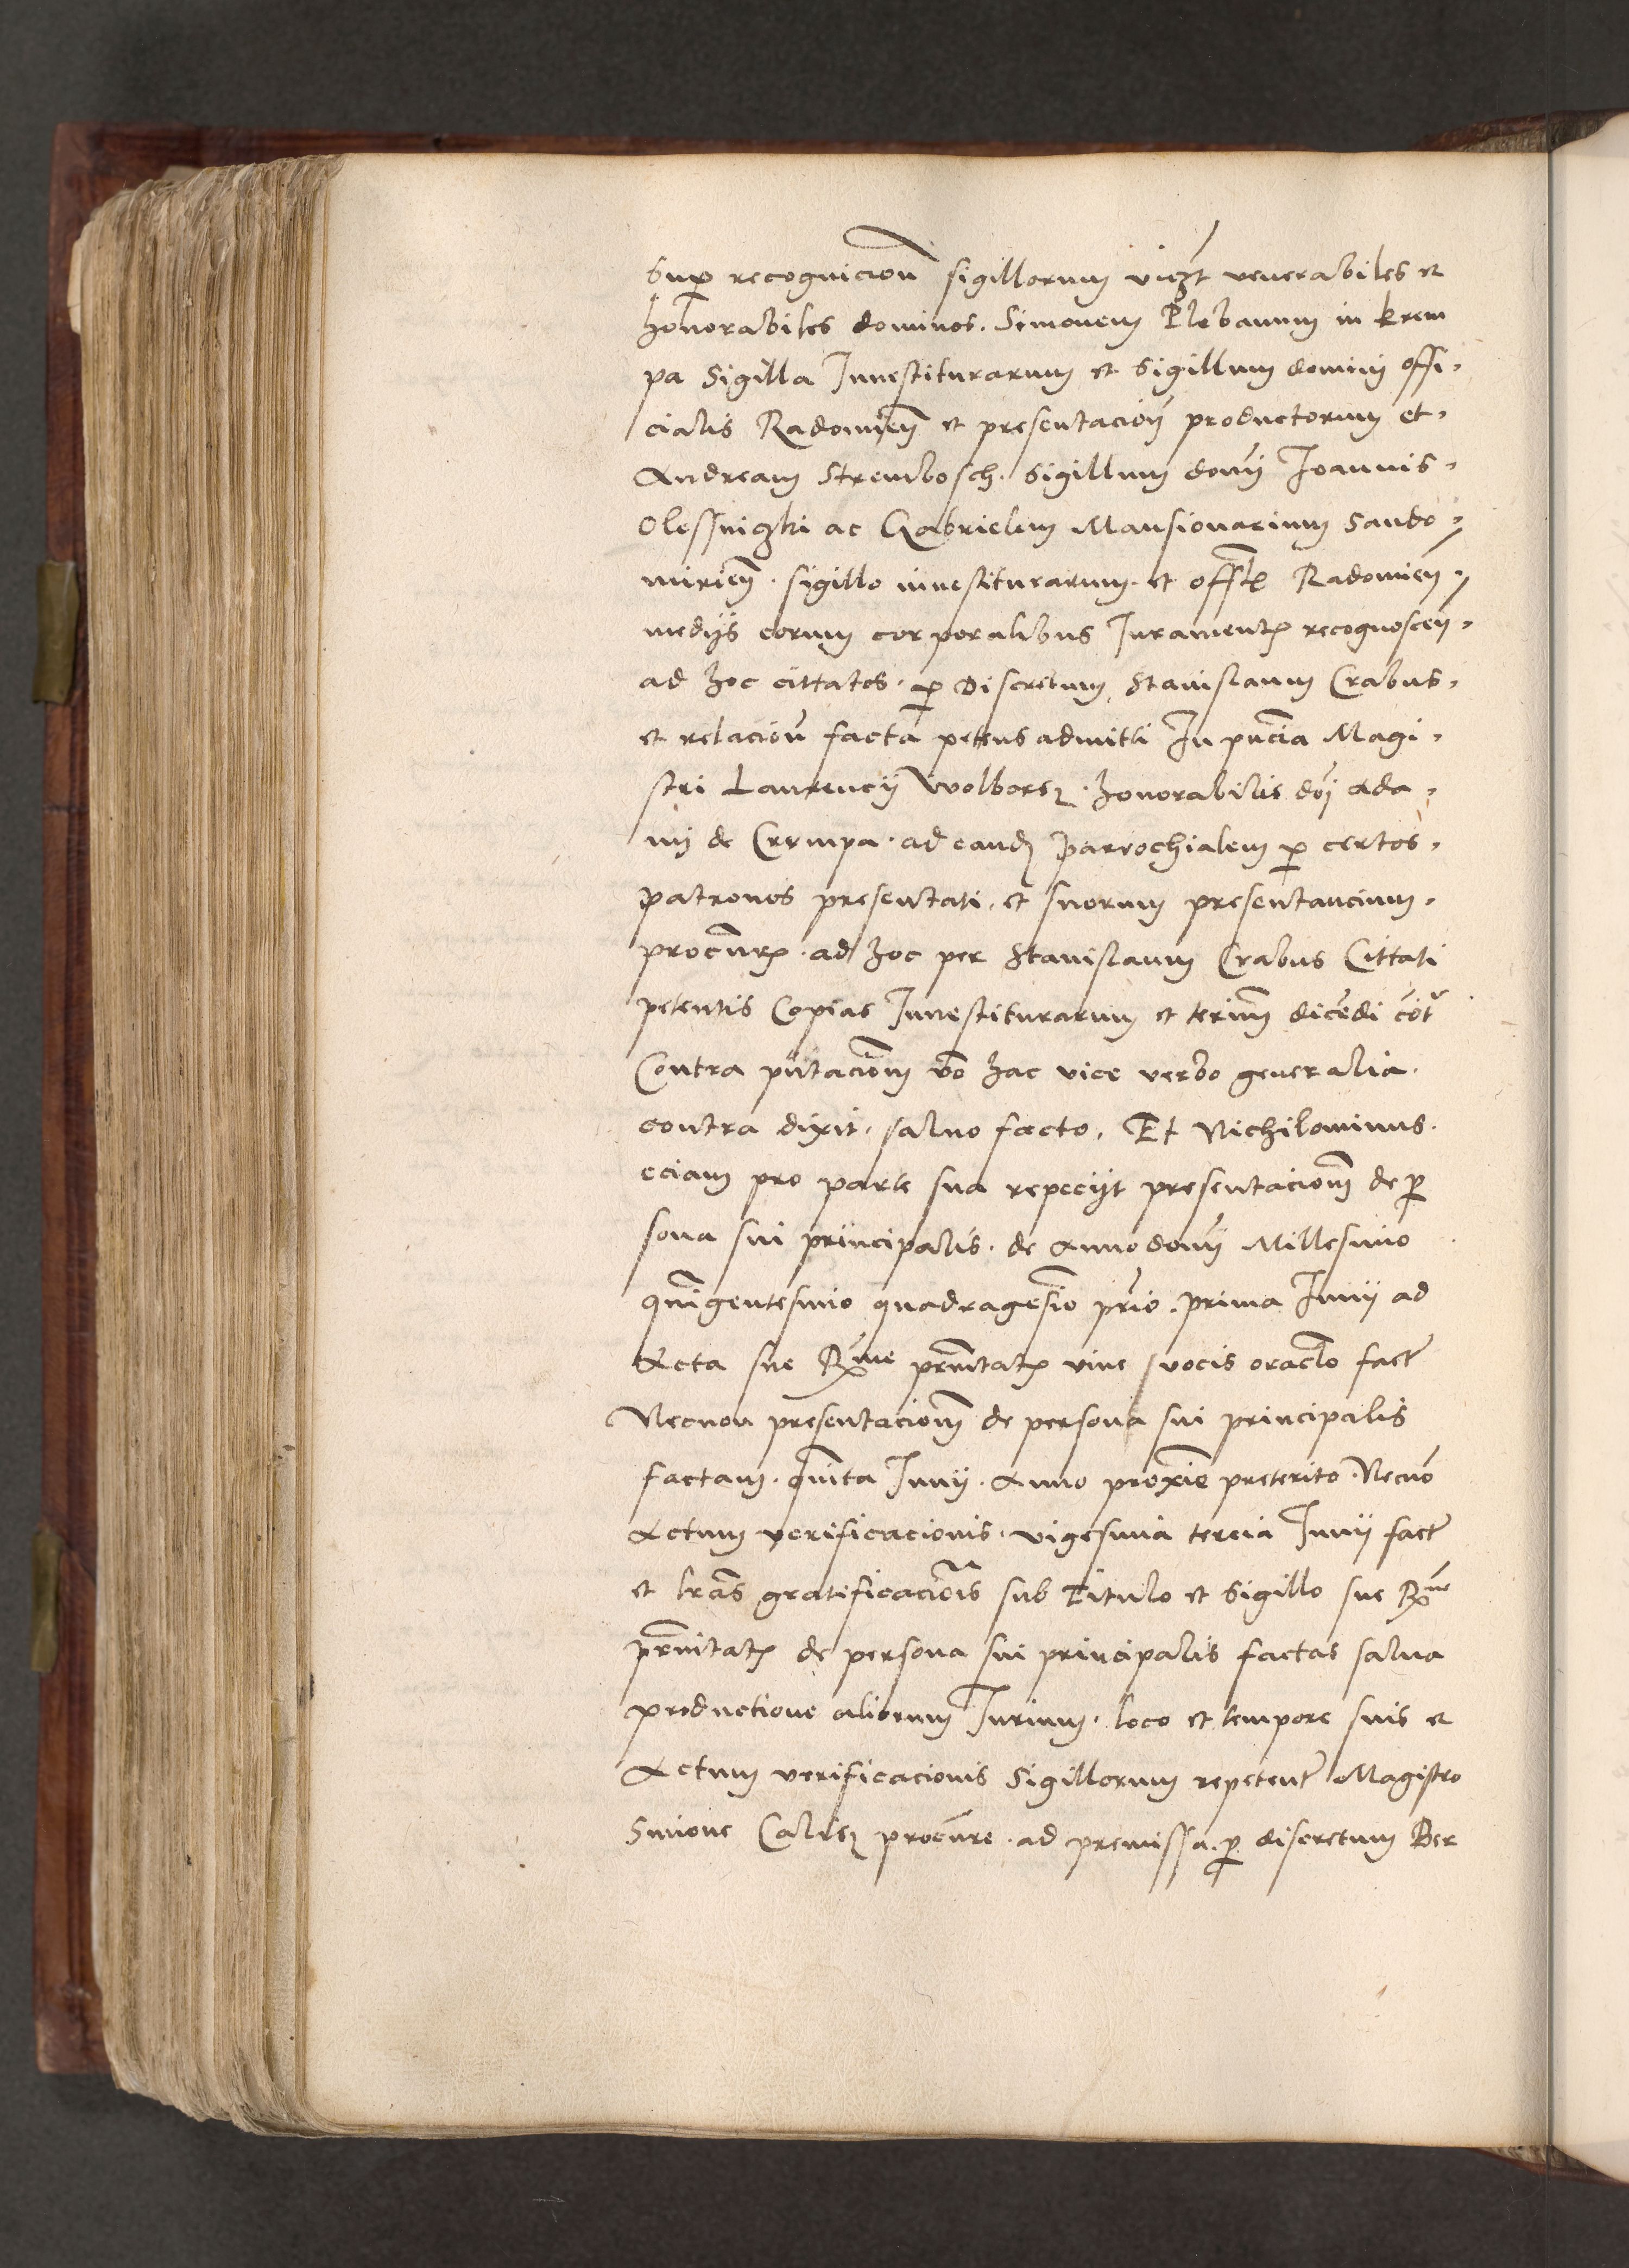 Sup recognicion̄ sigillorum videlꝫt venerabiles et
honorabiles dominos. Simonem Plebanum in krem
pa Sigilla Inuestiturarum et Sigillum domini offi-
cialis Radomien̄ et presentacion̄ productorum et-
Andream Strembosch. Sigillum domī Joannis-
Olessniczki ac Gabrielem Mansionarium Sando-
mirien̄. sigillo inuestiturarum. et offlꝭ Radomien̄-
medijs eorum corporalibus Juramentꝭ recognoscen̄-
ad hoc cittatos. p Discretum Stanislaum Crabus-
et relacion̄ facta petens admitti In pn̄cia Magi-
stri Laurencij Wolborꝫ. honorabilis dn̄i ada-
mi de Crempa. ad eandꝫ parrochialem p certos-
patronos presentati. et suorum presentancium.
procur̄ꝭ. ad hoc per Stanislaum Crabus Cittati
petentis Copias Inuestiturarum et termīm dicēdi cōtᵃ
Contra pn̄tacionem vō hac vice verbo generalia.
contra dixit, saluo facto. Et Nichilominus.
eciam pro parte sua repeciit presentacionem de p
sona sui principalis. de Anno domī Millesimo
qn̄igentesimo quadragesīo prīo. prima Junij ad
Acta sue Rᵐᵉ pr̄nitatꝭ viue vocis oraclo factᵉ
Necnon presentacionem de persona sui principalis
factam. qn̄ita Junij. Anno proxīe preterito. Necnō
Actum verificacionis. vigesima tercia Junij factᵉ
et lrās gratificaciōis sub Titulo et Sigillo sue Rᵐᵉ
pr̄nitatꝭ de persona sui principalis factas salua
productione aliorum Jurium. loco et tempore suis et
Actum verificacionis Sigillorum repetentᵉ Magistro
Simone Calisꝫ procūre. ad premissa. p discretum Ber